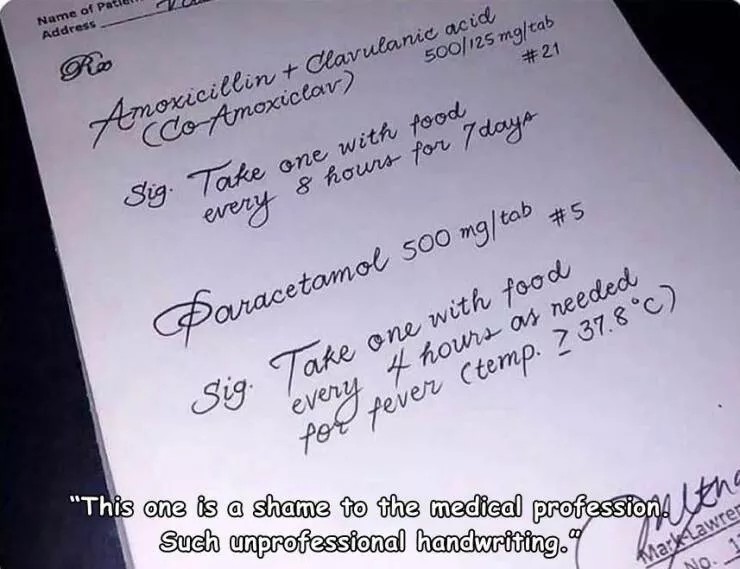 Name of
Address
Rx
Amoxicillin + Clavulanic acid
(Co-Amoxiclav) 500/125 mg/tab
#21
Sig. Take one with food
every 8 hours for 7 days
Paracetamol 500 mg/tab #5
Sig. Take one with food
every 4 hours as needed
for fever (temp. ≥ 37.8°C)
"This one is a shame to the medical profession.
Such unprofessional handwriting."
Mark
No.